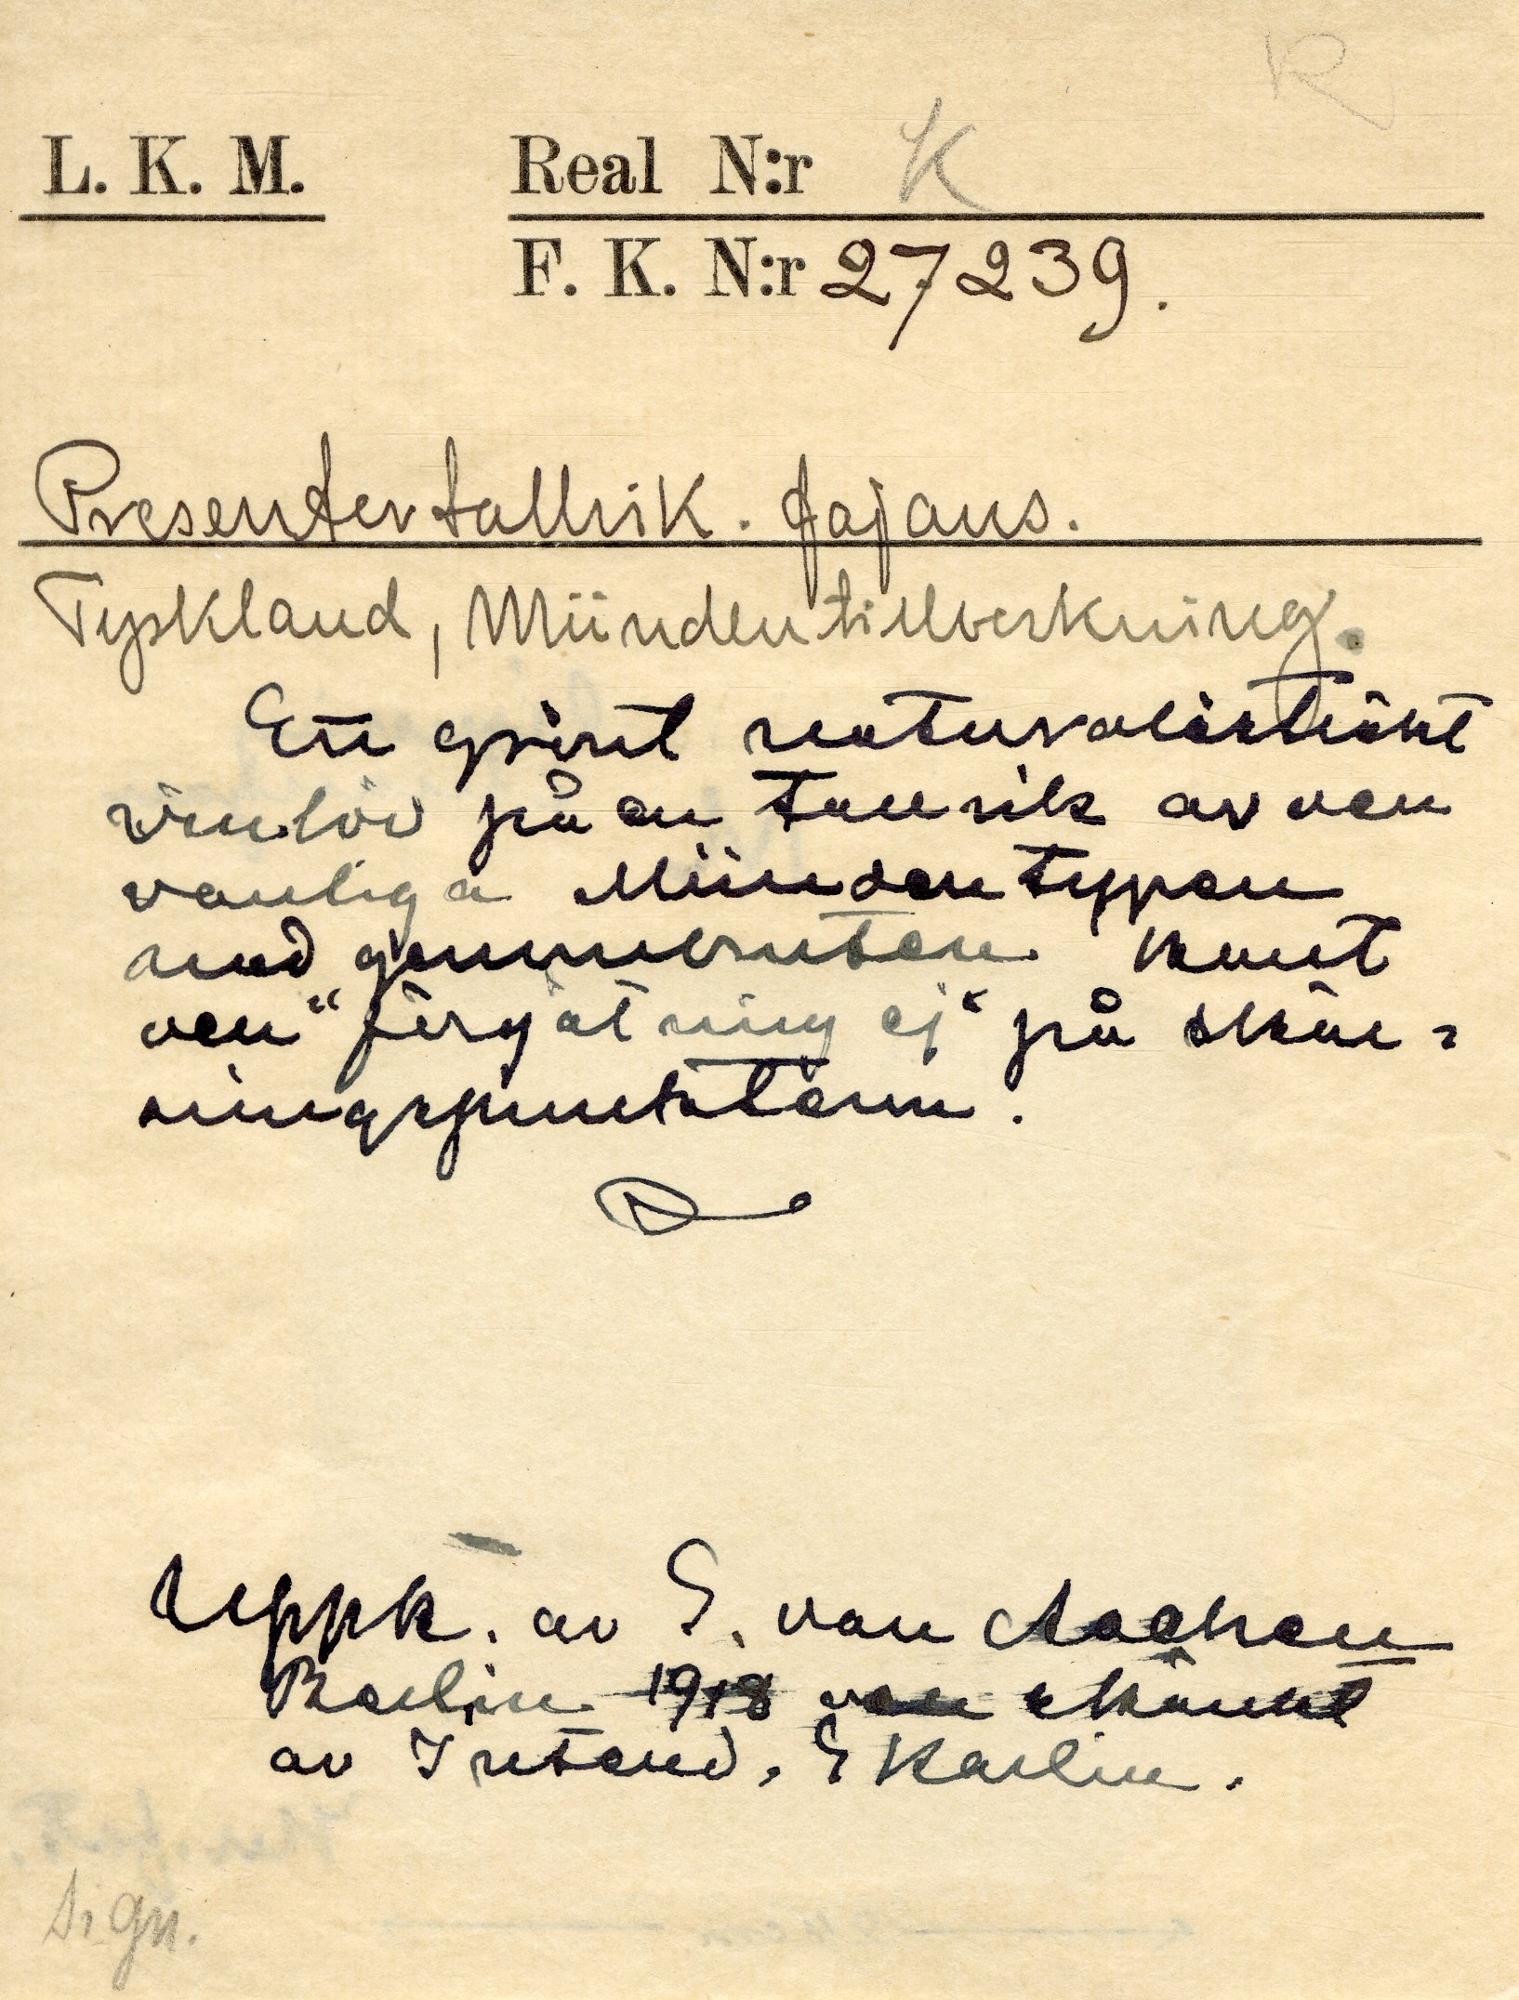 R
L. K. M. Real N:r K
F. K. N:r 27239.
Presentertallrik. fajans.
Tyskland, Münden tillverkning.
Ett grönt naturalistiskt
vinlöv på en tallrik av den
vanliga Münden typen
med genombruten kant
den "förgät mig ej" på skär-
ningspunkterna.
Uppk. av S. van Aachen
Berlin 1918 skänkt
av Intend. G Karlin.
Sign.